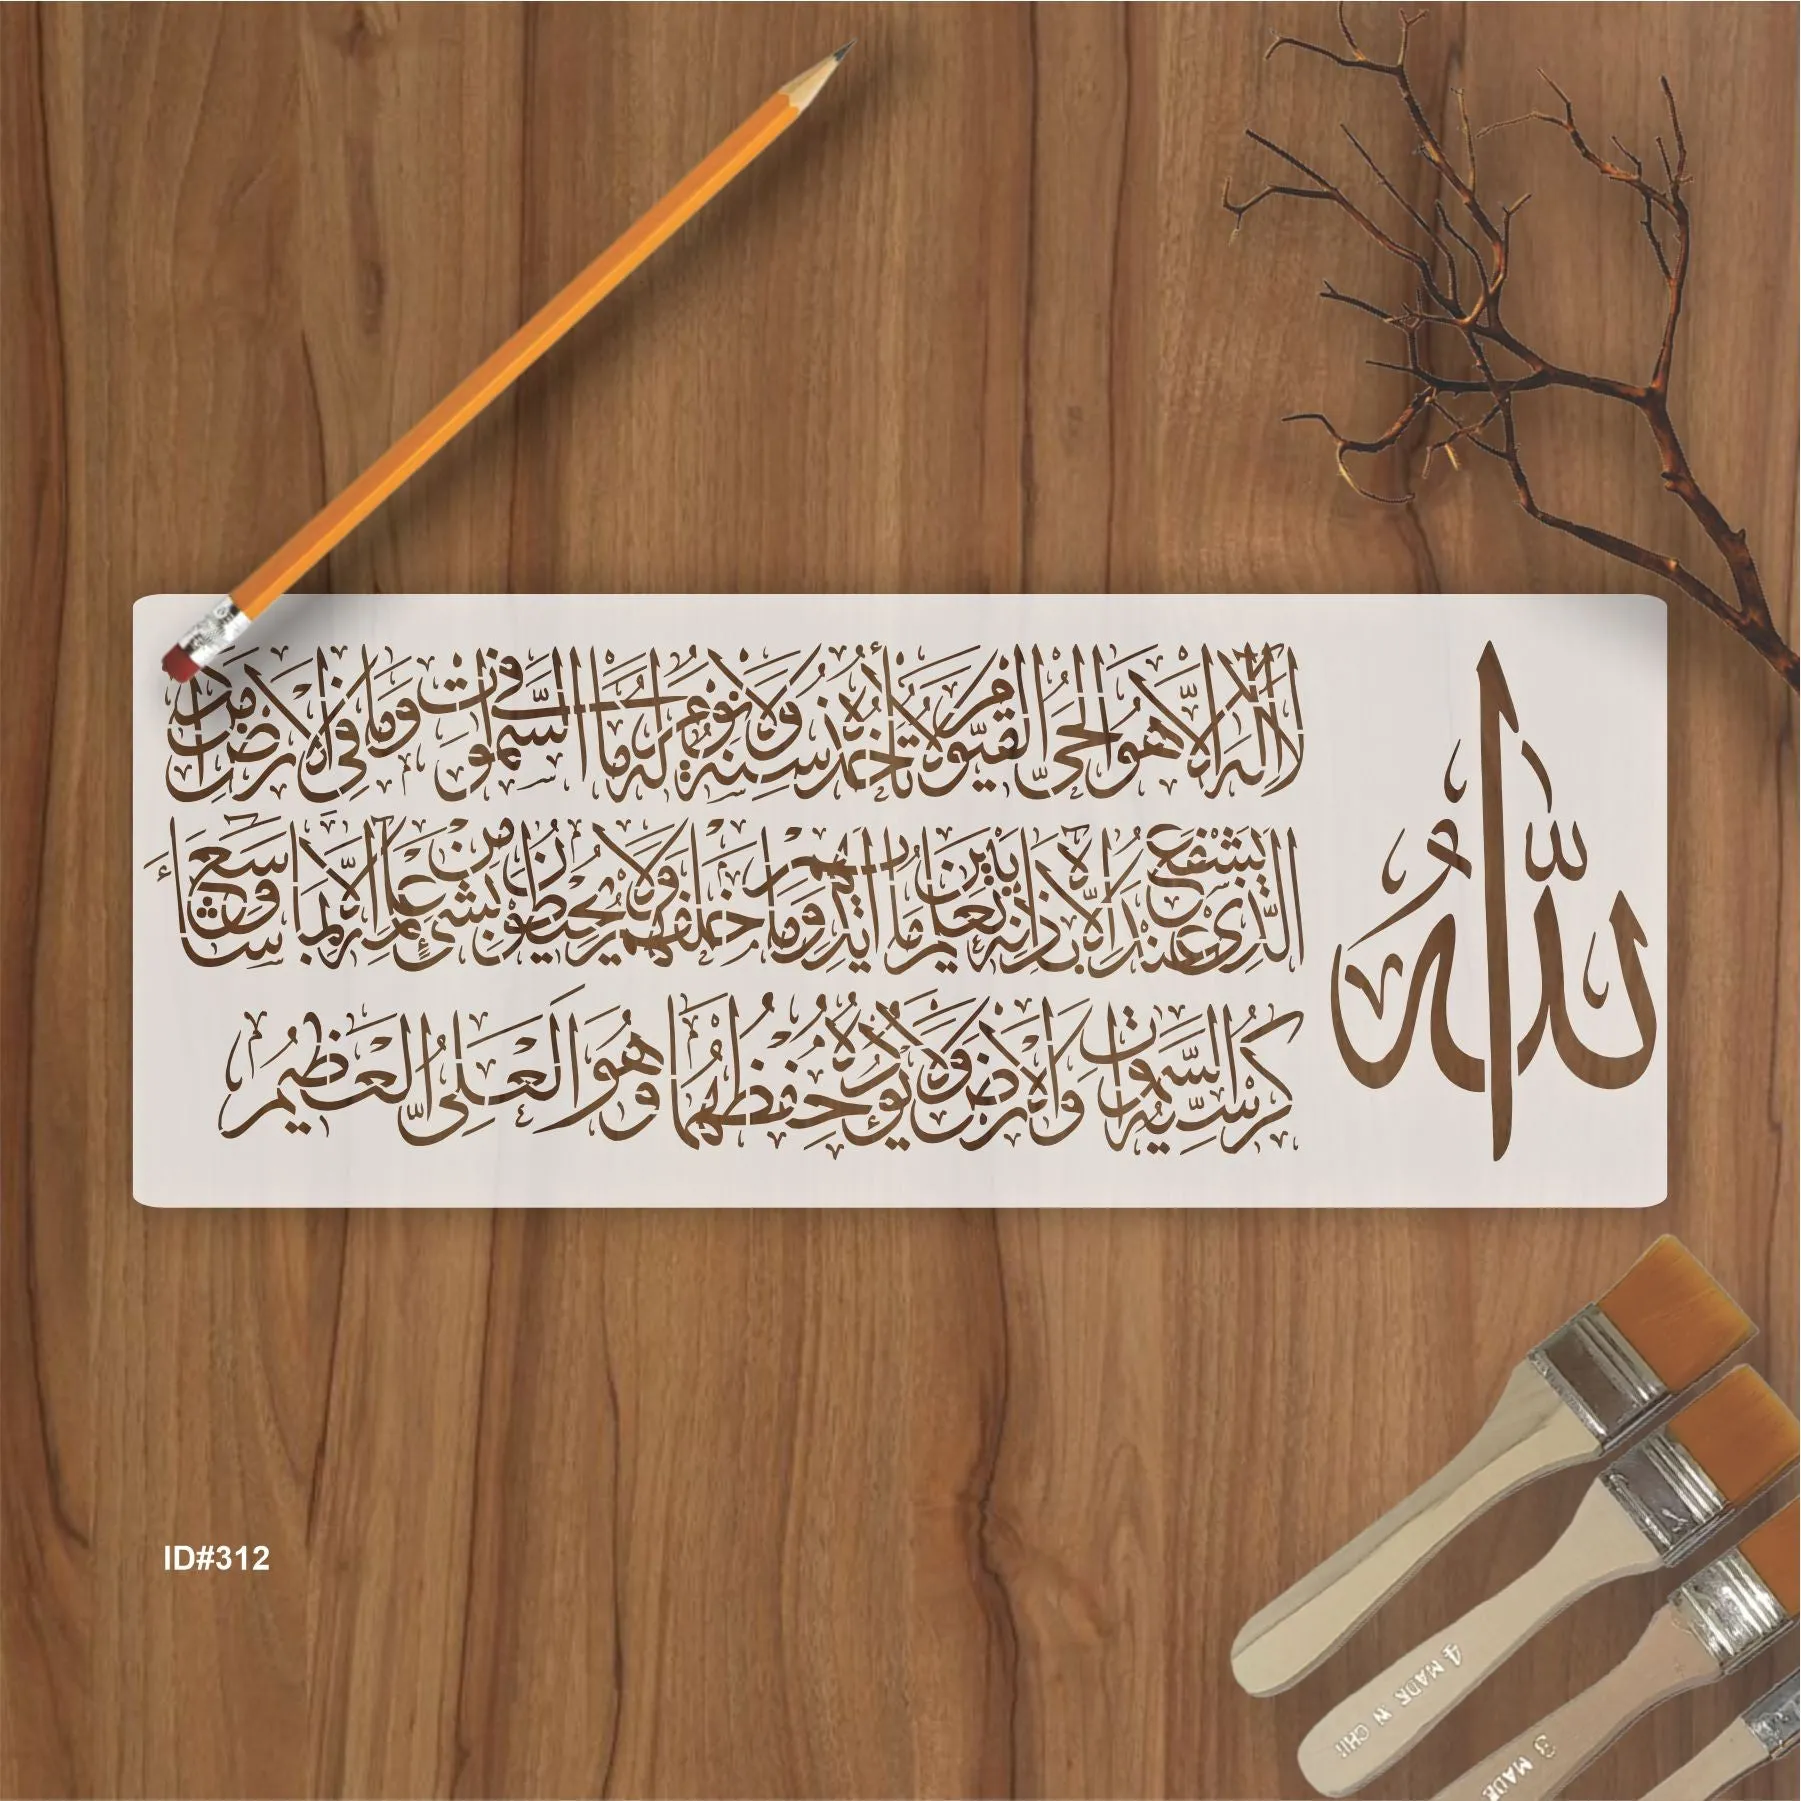 اللّٰه
لَا إِلٰهَ إِلَّا هُوَ الْحَيُّ الْقَيُّومُ لَا تَأْخُذُهُ سِنَةٌ وَلَا نَوْمٌ لَهُ مَا فِي السَّمٰوٰتِ وَمَا فِي الْأَرْضِ مَنْ ذَا
الَّذِي يَشْفَعُ عِنْدَهُ إِلَّا بِإِذْنِهِ يَعْلَمُ مَا بَيْنَ أَيْدِيهِمْ وَمَا خَلْفَهُمْ وَلَا يُحِيطُونَ بِشَيْءٍ مِنْ عِلْمِهِ إِلَّا بِمَا شَاءَ وَسِعَ
كُرْسِيُّهُ السَّمٰوٰتِ وَالْأَرْضَ وَلَا يَئُودُهُ حِفْظُهُمَا وَهُوَ الْعَلِيُّ الْعَظِيمُ
ID#312
4 MADE IN CHI
3 MADE